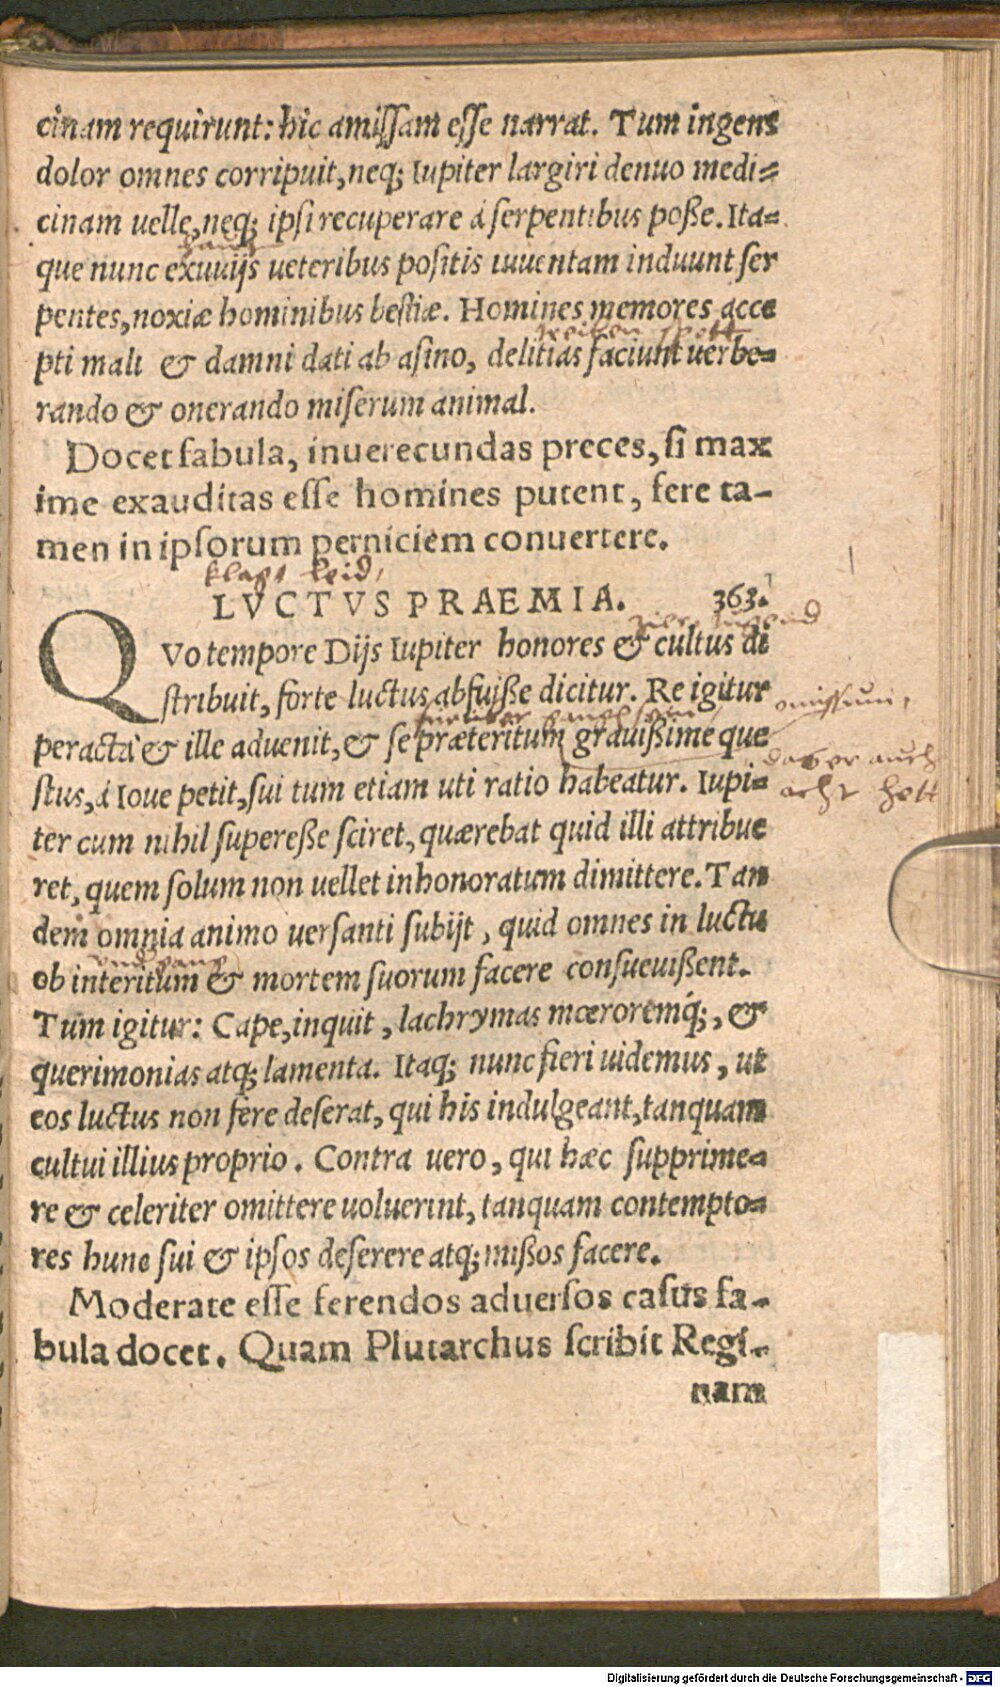 cinam requirunt: hic amissam esse narrat. Tum ingens
dolor omnes corripuit, neq; Iupiter largiri denuo medi=
cinam uelle, neq; ipsi recuperare á serpentibus poße. Ita=
que nunc exuuijs ueteribus positis iuuentam induunt ser
pentes, noxiæ hominibus bestiæ. Homines memores acce
pti mali & damni dati ab asino, delitias faciunt uerbe=
rando & onerando miserum animal.
Docet fabula, inuerecundas preces, si max
ime exauditas esse homines putent, fere ta-
men in ipsorum perniciem conuertere.
klagt leid,
LVCTVS PRAEMIA. 363.
QVo tempore Dijs Iupiter honores & cultus di
stribuit, forte luctus abfuiße dicitur. Re igitur
omissum,
peracta & ille aduenit, & se præteritum grauißime que
stus, á Ioue petit, sui tum etiam uti ratio habeatur. Iupi=
acht hett
ter cum nihil supereße sciret, quærebat quid illi attribue
ret, quem solum non uellet inhonoratum dimittere. Tan
dem omnia animo uersanti subijt, quid omnes in luctu
ob interitum & mortem suorum facere consueuißent.
Tum igitur: Cape, inquit, lachrymas mœroremq;, &
querimonias atq; lamenta. Itaq; nunc fieri uidemus, ut
eos luctus non fere deserat, qui his indulgeant, tanquam
cultui illius proprio. Contra uero, qui hæc supprime=
re & celeriter omittere uoluerint, tanquam contempto=
res hunc sui & ipsos deserere atq; mißos facere.
Moderate esse ferendos aduersos casus fa-
bula docet. Quam Plutarchus scribit Regi-
nam
Digitalisierung gefördert durch die Deutsche Forschungsgemeinschaft - DFG